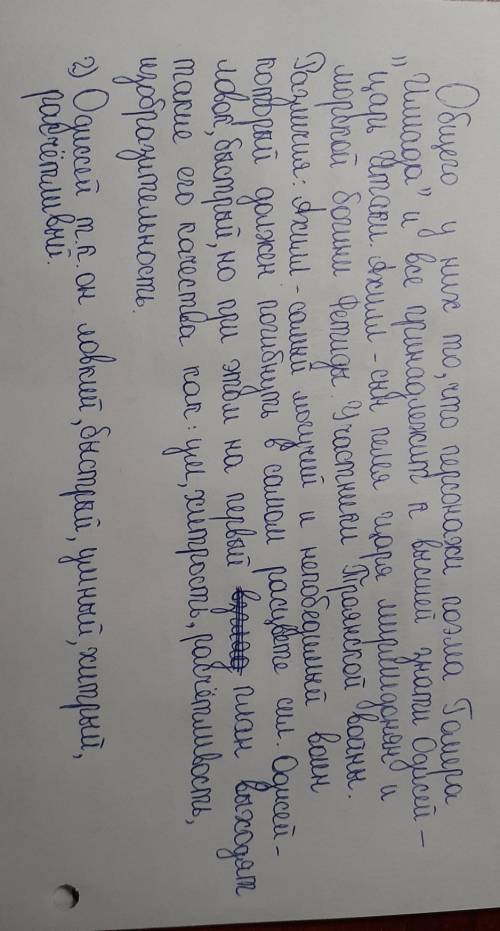 Общего у них то, что персонажи поэма Гомера
"Илиада" и все принадлежит к высшей знати Одисей –
царь Итаки. Ахилл – сын пелея царя мирмидонян и
морской богини Фетиды. Участники Троянской войны.
Различия: Ахилл – самый могучий и непобедимый воин
который должен погибнуть в самом расцвете сил. Одисей –
ловок, быстрый, но при этом на первый план выходят
такие его качества как: ум, хитрость, расчётливость,
изобразительность.
2) Одисей т.к. он ловкий, быстрый, умный, хитрый,
расчётливый.